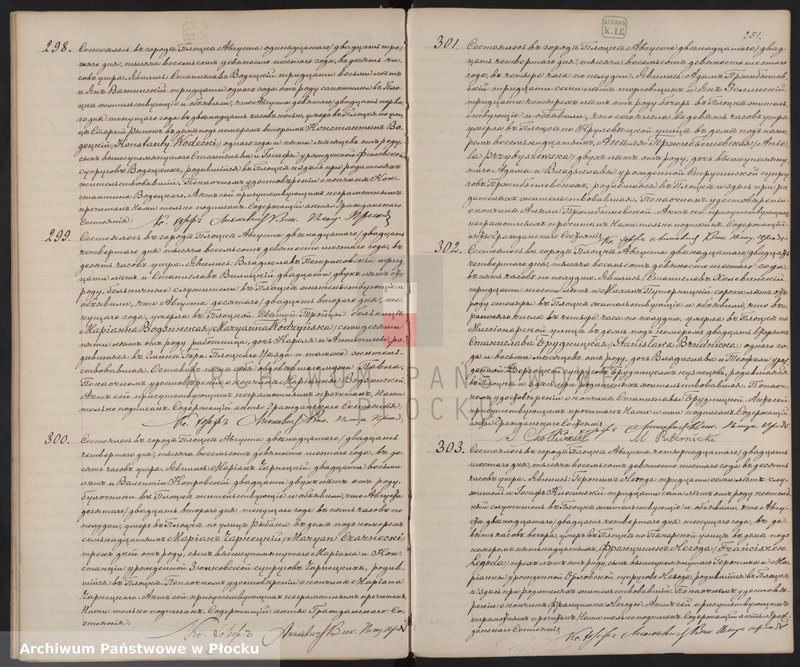 298. Состоялось въ городѣ Плоцкѣ Августа одинадцатаго /двадцать тре-
тьяго дня, тысяча восемьсотъ девяносто шестаго года, въ десять ча-
совъ утра. Явились: Станиславъ Водецкій тридцати восьми лѣтъ
и Янъ тридцати одного лѣтъ отъ роду сапожники въ Пло-
цкѣ жительствующіе и объявили, что Августа девятаго /двадцать перва-
го дня текущаго года въ двѣнадцать часовъ ночью, умеръ въ Плоцкѣ по ули-
цѣ Старый Рынокъ въ домѣ подъ номеромъ вторымъ Константинъ Во-
децкій /Konstanty Wodecki/ одного года и пяти мѣсяцевъ отъ роду,
сынъ вышеупомянутаго Станислава и Іозефы урожденной
супруговъ Водецкихъ, родившійся въ Плоцкѣ и здѣсь при родителяхъ
жительствовавшій. По наочномъ удостовѣреніи о кончинѣ Кон-
стантина Водецкаго, Актъ сей присутствующимъ неграмотнымъ
прочитанъ Нами только подписанъ. Содержащій акты Гражданскаго
Состоянія.
299. Состоялось въ городѣ Плоцкѣ Августа двѣнадцатаго /двадцать
четвертаго дня тысяча восемьсотъ девяносто шестаго года, въ
десять часовъ утра. Явились: Владиславъ Петриковскій трид-
цати лѣтъ и Станиславъ Вилицкій двадцати двухъ лѣтъ отъ
роду, больничные служители въ Плоцкѣ жительствующіе и
объявили, что Августа десятаго /двадцать втораго дня, те-
кущаго года, умерла въ Плоцкой Святой Троицы больницѣ
Маріанна Водзинская /Maryanna Wodzyńska/ семидесяти
пяти лѣтъ отъ роду работница, дочь Кароля и Антонины, ро-
дившаяся въ Гора Плоцкаго Уѣзда и тамже житель-
ствовавшая. Оставила послѣ себя овдовѣвшаго мужа Павла.
По наочномъ удостовѣреніи о кончинѣ Маріанны Водзинской
Актъ сей присутствующимъ неграмотнымъ прочитанъ Нами
только подписанъ. Содержащій акты Гражданскаго Состоянія.
300. Состоялось въ городѣ Плоцкѣ Августа двѣнадцатаго /двадцать
четвертаго дня, тысяча восемьсотъ девяносто шестаго года, въ де-
сять часовъ утра. Явились: Маріанъ Чарнецкій, двадцати восьми
лѣтъ и Валентій Копровскій двадцати двухъ лѣтъ отъ роду,
булочники въ Плоцкѣ жительствующіе и объявили, что Августа
десятаго /двадцать втораго дня текущаго года въ пять часовъ по
полудни, умеръ въ Плоцкѣ по улицѣ Рыбаки въ домѣ подъ номеромъ
семнадцатымъ Маріанъ Чарнецкій /Maryan Czarnecki/
трехъ дней отъ роду, сынъ вышеупомянутаго Маріана и Кон-
станціи урожденной супруговъ Чарнецкихъ, родив-
шійся въ Плоцкѣ. По наочномъ удостовѣреніи о кончинѣ Маріана
Чарнецкаго. Актъ сей присутствующимъ неграмотнымъ прочитанъ
Нами только подписанъ. Содержащій акты Гражданскаго Со-
стоянія.
251.
301. Состоялось въ городѣ Плоцкѣ Августа двѣнадцатаго /двад-
цать четвертаго дня, тысяча восемьсотъ девяносто шестаго
года, въ четыре часа по полудни. Явились: Адамъ Пржибышев-
скій тридцати семи лѣтъ торговецъ и Янъ Зелинскій
тридцати четырехъ лѣтъ отъ роду бочаръ въ Плоцкѣ житель-
ствующіе и объявили, что сего числа въ девять часовъ утра
умерла въ Плоцкѣ по Крулевецкой улицѣ въ домѣ подъ номе-
ромъ восемнадцатымъ, Анеля Пржибышевска /Aniela
Przybyszewska/ двухъ лѣтъ отъ роду, дочь вышеупомяну-
таго Адама и Владиславы урожденной супруго-
въ Пржибышевскихъ, родившаяся въ Плоцкѣ и здѣсь при ро-
дителяхъ жительствовавшая. По наочномъ удостовѣреніи
о кончинѣ Анели Пржибышевской. Актъ сей присутствующимъ
неграмотнымъ прочитанъ Нами только подписанъ. Содержащій
акты Гражданскаго Состоянія.
302. Состоялось въ городѣ Плоцкѣ Августа двѣнадцатаго /двадцать
четвертаго дня, тысяча восемьсотъ девяносто шестаго года
въ пять часовъ по полудни. Явились: Станиславъ Холевинскій
тридцати шести лѣтъ и Михалъ Путерницкій сорока лѣтъ отъ
роду столяры въ Плоцкѣ жительствующіе и объявили, что въ
числѣ въ четыре часа по полудни, умерла въ Плоцкѣ по
Миссіонарской улицѣ въ домѣ подъ номеромъ двѣсти
Станислава Брудницкая /Stanisława Brudnicka/ одного го-
да и восьми мѣсяцевъ отъ роду, дочь Владислава и Теофили уро-
жденной супруговъ Брудницкихъ кузнецовъ, родившаяся
въ Плоцкѣ и здѣсь при родителяхъ жительствовавшая. По наоч-
номъ удостовѣреніи о кончинѣ Станиславы Брудницкой Актъ сей
присутствующимъ прочитанъ Нами и ими подписанъ. Содержащій
акты Гражданскаго Состоянія.
303. Состоялось въ городѣ Плоцкѣ Августа четырнадцатаго /двадцать
шестаго дня, тысяча восемьсотъ девяносто шестаго года въ десять
часовъ утра. Явились: Геронимъ Легода тридцати семи лѣтъ слу-
житель и Іосифъ Ясинскій тридцати семи лѣтъ отъ роду костель-
ный служитель въ Плоцкѣ жительствующіе и объявили, что Авгу-
ста двѣнадцатаго /двадцать четвертаго дня текущаго года, въ де-
вять часовъ вечера, умеръ въ Плоцкѣ по Пекарской улицѣ въ домѣ подъ
номеромъ пятнадцатымъ, Францишекъ Легода /Franciszek
Legoda/ трехъ лѣтъ отъ роду, сынъ вышеупомянутаго Геронима и Ма-
ріанны урожденной Орловской супруговъ Легода, родившійся въ Плоцкѣ
и здѣсь при родителяхъ жительствовавшій. По наочномъ удостовѣ-
реніи о кончинѣ Францишка Легода. Актъ сей присутствующимъ
неграмотнымъ прочитанъ Нами только подписанъ. Содержащій акты Граж-
данскаго Состоянія.
ARCHIWUM PAŃSTWOWE
W PŁOCKU
Archiwum Państwowe w Płocku